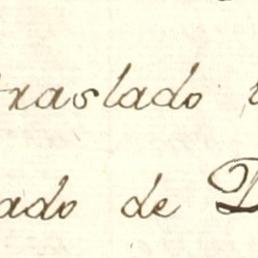 traslado
ado de D